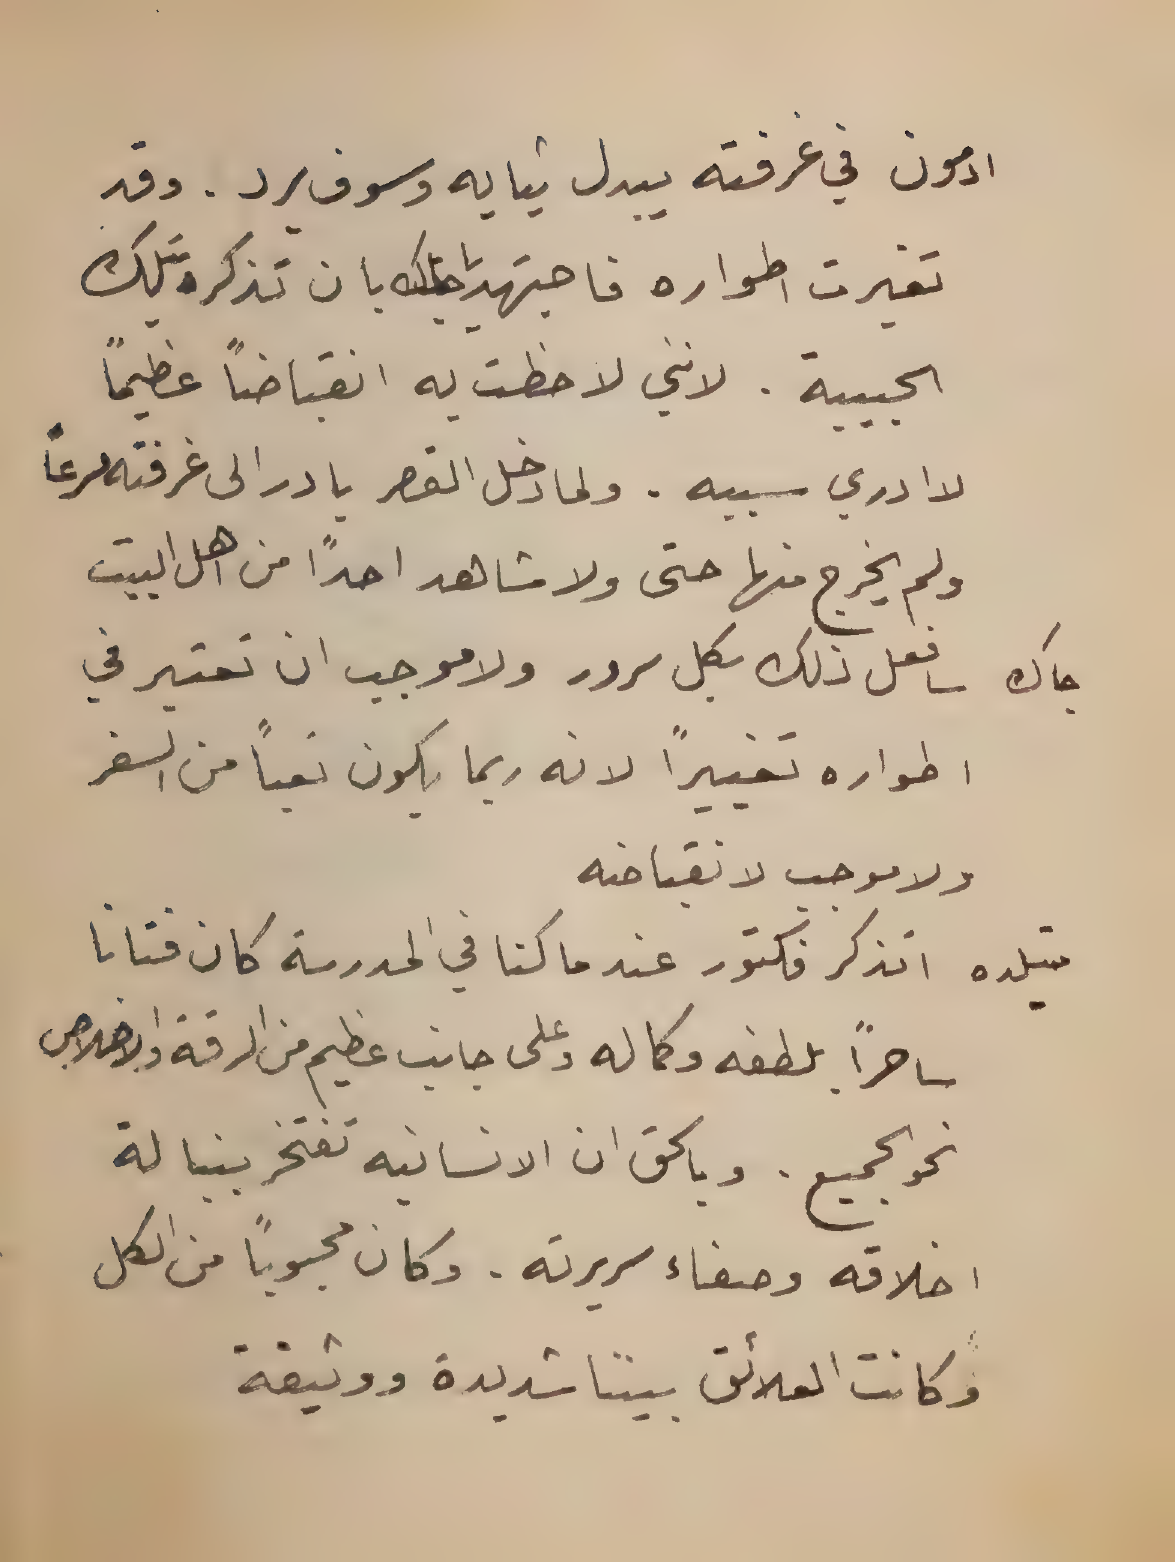 ادمون في غرفته يبدل ثيابه وسوف يرد . وقد
تغيرت اطواره فاجتهد بان تذكره بتلك
الحبيبة . لانني لاحظت به انقباضاً عظيماً
لا ادري سببه . ولما دخل القصر بادر الى غرفته مسرعاً
ولم يخرج منها حتى ولا شاهد احداً من اهل البيت
جاك سافعل ذلك بكل سرور ولا موجب ان تعتبر في
اطواره تغييراً لانه ربما يكون تعباً من السفر
ولا موجب لانقباضه
متيلده اتذكر فكتور عندما كنا في المدرسة كان فتانا
ساحراً بلطفه وكماله وعلى جانب عظيم من الرقة والاخلاص
نحو الجميع . وبالحق ان الانسانيه تفتخر بنبالة
اخلاقه وصفاء سريرته . وكان محبوباً من الكل
وكانت العلائق بيننا شديدة ووثيقة